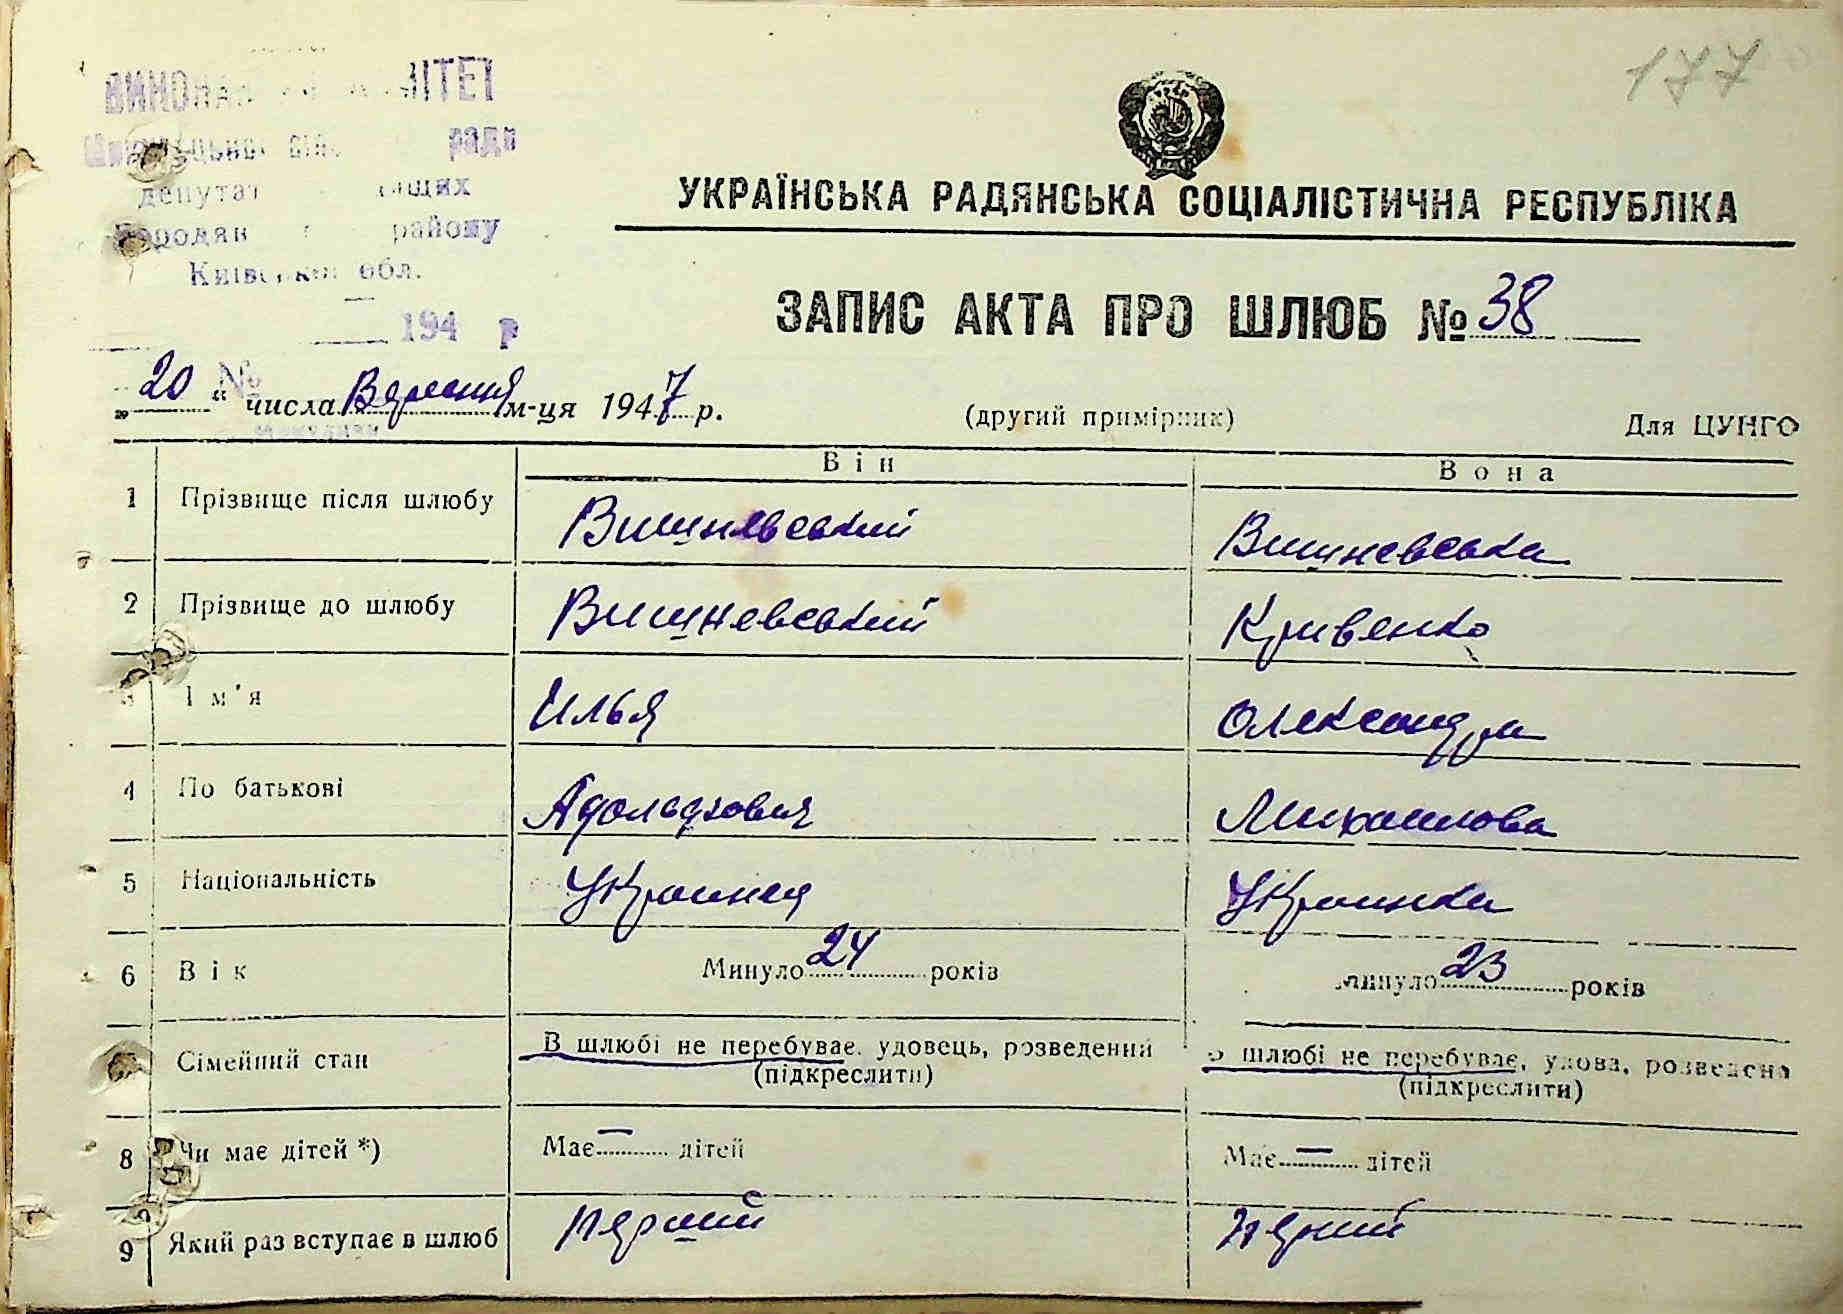 177
ради
депутат
району
обл.
194 р
УКРАЇНСЬКА РАДЯНСЬКА СОЦІАЛІСТИЧНА РЕСПУБЛІКА
ЗАПИС АКТА ПРО ШЛЮБ № 38
№
„20“ числа Вересня м-ця 1947 р. (другий примірник) Для ЦУНГО
Він Вона
1 Прізвище після шлюбу Вишнявський Вишневська
2 Прізвище до шлюбу Вишневський Кривенко
3 Ім'я Илья Олександра
4 По батькові Адольфович Михаилова
5 Національність Украинец Украинка
6 Вік Минуло 24 років Минуло 23 років
Сімейний стан В шлюбі не перебуває, удовець, розведений В шлюбі не перебуває, удова, розведена
(підкреслити) (підкреслити)
8 Чи має дітей *) Має — дітей Має — дітей
9 Який раз вступає в шлюб перший перший